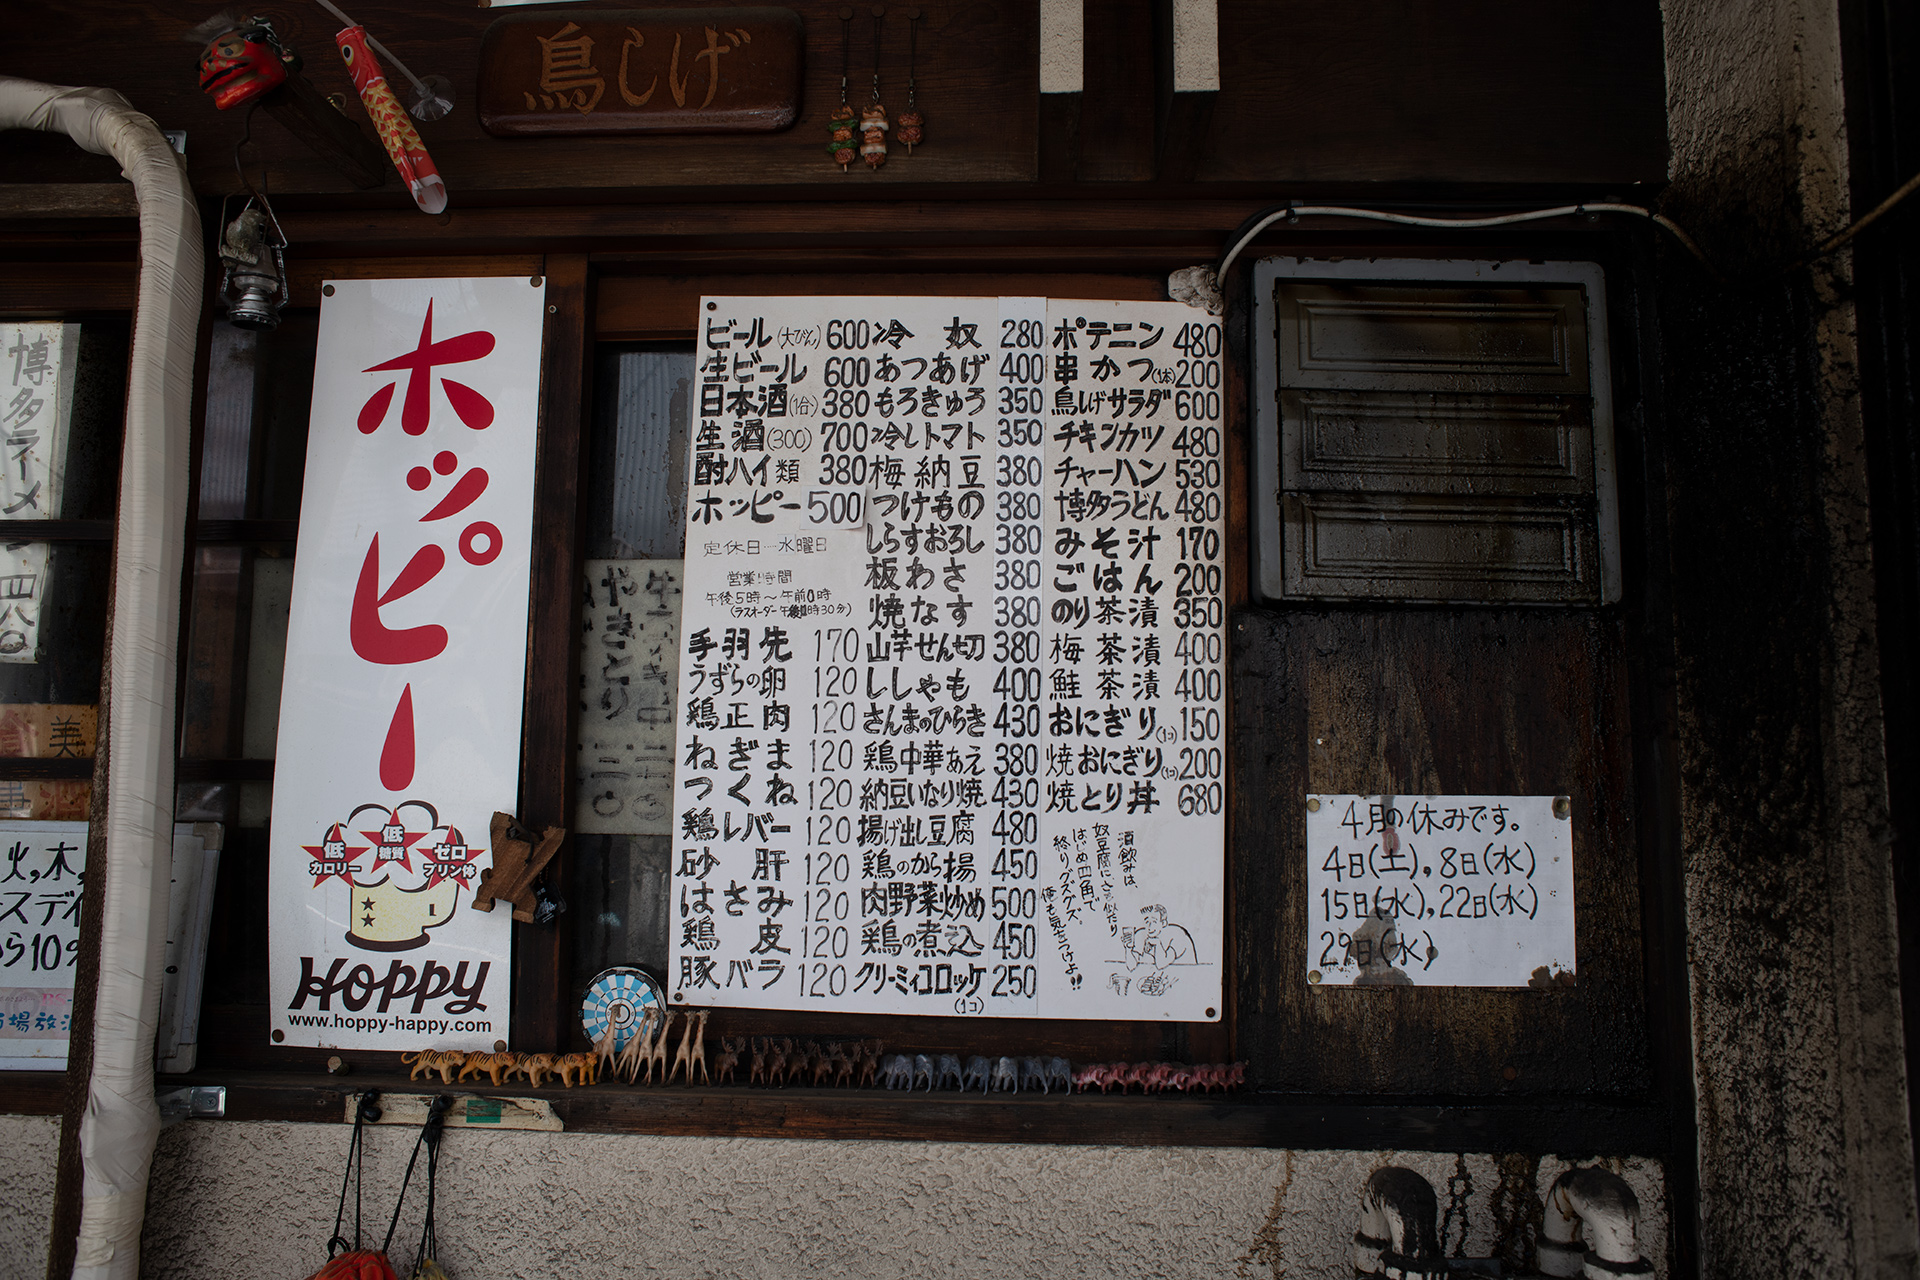 鳥しげ
博多ラーメン 四八〇
美
火,木,
スデイ
ら10%
市場放送
ホッピー
低
カロリー
低
糖質
ゼロ
プリン体
HOPPY
www.hoppy-happy.com
やきとり
ビール(大びん) 600
生ビール 600
日本酒(1合) 380
生酒(300) 700
酎ハイ類 380
ホッピー 500
定休日…水曜日
営業時間
午後5時〜午前0時
(ラスオーダー午後11時30分)
手羽先 170
うずらの卵 120
鶏正肉 120
ねぎま 120
つくね 120
鶏レバー 120
砂肝 120
はさみ 120
鶏皮 120
豚バラ 120
冷奴 280
あつあげ 400
もろきゅう 350
冷しトマト 350
梅納豆 380
つけもの 380
しらすおろし 380
板わさ 380
焼なす 380
山芋せん切 380
ししゃも 400
さんまのひらき 430
鶏中華あえ 380
納豆いなり焼 430
揚げ出し豆腐 480
鶏のから揚 450
肉野菜炒め 500
鶏の煮込 450
クリーミィコロッケ 250
(1コ)
ポテニン 480
串かつ(1本) 200
鳥しげサラダ 600
チキンカツ 480
チャーハン 530
博多うどん 480
みそ汁 170
ごはん 200
のり茶漬 350
梅茶漬 400
鮭茶漬 400
おにぎり(1コ) 150
焼おにぎり(1コ) 200
焼とり丼 680
酒飲みは、
奴豆腐にさも似たり
はじめ四角で
終りグズグズ。
俺も気をつけよ!!
4月の休みです。
4日(土),8日(水)
15日(水),22日(水)
29日(水)